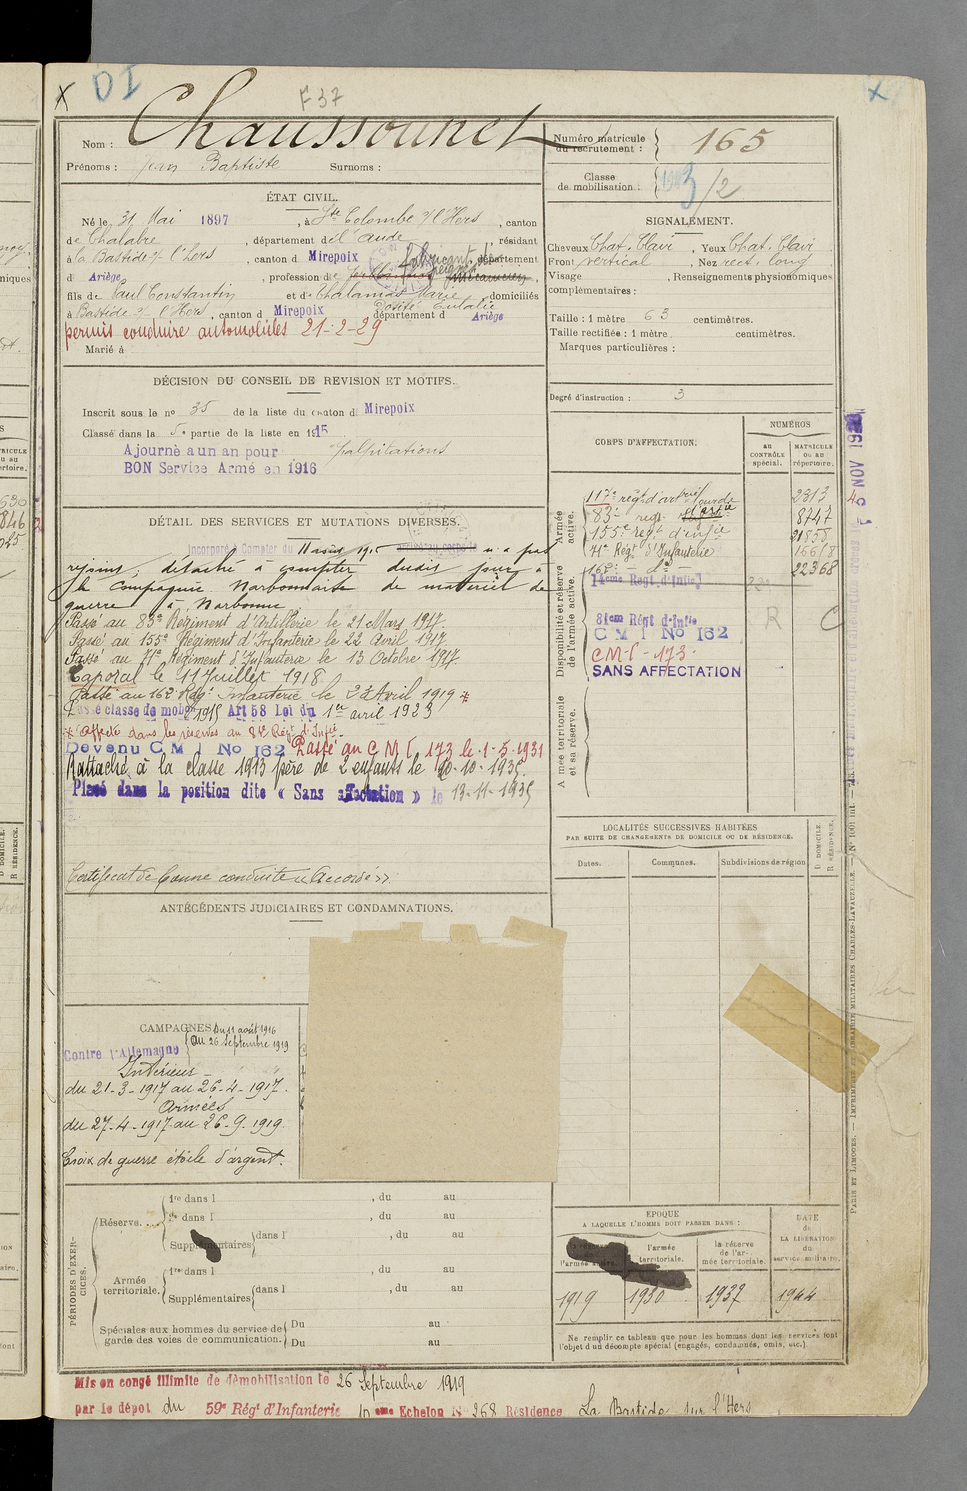 x DI F37 x
Nom : Chaussounet
Prénoms : Jean Baptiste Surnoms :
Numéro matricule du recrutement : 165
Classe de mobilisation : 1913/2
ÉTAT CIVIL.
Né le 31 Mai 1897, à Ste Colombe s/ l'Hers, canton
de Chalabre, département de l'Aude, résidant
à la Bastide s/- l'Hers, canton d Mirepoix, département
d Ariège, profession de fabricant de peignes
fils de Paul Constantin et de Chalamas Marie, domiciliés
Dosité Eulalie
à Bastide s/- l'Hers, canton d Mirepoix département d Ariège
permis conduire automobiles 21-2-29
Marié à
SIGNALEMENT.
Cheveux Chat. Clair, Yeux Chat. Clair
Front vertical, Nez rect. long
Visage , Renseignements physionomiques
complémentaires :
Taille : 1 mètre 63 centimètres.
Taille rectifiée : 1 mètre centimètres.
Marques particulières :
Degré d'instruction : 3
DÉCISION DU CONSEIL DE REVISION ET MOTIFS.
Inscrit sous le no 35 de la liste du canton d Mirepoix
Classé dans la 5e partie de la liste en 1915
Ajourné a un an pour palpitations
BON Service Armé en 1916
DÉTAIL DES SERVICES ET MUTATIONS DIVERSES.
Incorporé à Compter du 11 août arrivé au corps le n'a pas
rejoint; détaché à compter dudit jour à
la Compagnie Narbonnaise de matériel de
guerre à Narbonne
Passé au 83e Régiment d'Artillerie le 21 Mars 1917.
Passé au 155e Régiment d'Infanterie le 22 Avril 1917
Passé au 71e Régiment d'Infanterie le 13 Octobre 1917.
Caporal le 11 Juillet 1918
Passé au 162e Régt Infanterie le 22 Avril 1919 *
classe de mob 1915 Art 58 Loi du 1er avril 1923
* Affecté dans les réserves au 81e Régt d'Infie
Devenu C M I No 162 Passé au C M I, 173 le 1-5-1931
Rattaché à la classe 1913 père de 2 enfants le 20-10-1935.
Placé dans la position dite « Sans affectation » le 13-11-1935
Certificat de bonne conduite « Accordé ».
CORPS D'AFFECTATION.
NUMÉROS
AU CONTRÔLE spécial.
MATRICULE OU AU répertoire.
Armée active.
117e régt d'artrie lourde 2313
83e reg. artie 8747
155e regt d'infie 21858
71e Régt d'Infanterie 16618
162e - do - 22368
Disponibilité et réserve de l'armée active.
14eme Regt d'Inftie
81em Régt d'Inftie R C
C M I No 162
CM-I- 173-
SANS AFFECTATION
Armée territoriale et sa réserve.
LOCALITÉS SUCCESSIVES HABITÉES
PAR SUITE DE CHANGEMENTS DE DOMICILE OU DE RÉSIDENCE.
Dates. Communes. Subdivisions de région D DOMICILE. R RÉSIDENCE.
ANTÉCÉDENTS JUDICIAIRES ET CONDAMNATIONS.
CAMPAGNES
Contre l'Allemagne Du 11 août 1916 au 26 Septembre 1919
Intérieur -
du 21-3-1917 au 26-4-1917.
Armées
du 27-4-1917 au 26-9-1919.
Croix de guerre étoile d'argent.
PÉRIODES D'EXERCICES.
Réserve.
1re dans l , du au
2e dans l , du au
Supplémentaires dans l , du au
Armée territoriale.
1re dans l , du au
Supplémentaires dans l , du au
Spéciales aux hommes du service de garde des voies de communication.
Du au
Du au
ÉPOQUE
A LAQUELLE L'HOMME DOIT PASSER DANS :
l'armée territoriale. la réserve de l'armée territoriale.
DATE de LA LIBÉRATION du service militaire.
1919 1930 1937 1944
Ne remplir ce tableau que pour les hommes dont les services font
l'objet d'un décompte spécial (engagés, condamnés, omis, etc.)
Mis en congé illimité de démobilisation le 26 Septembre 1919
par le dépôt du 59e Régt d'Infanterie 10 eme Echelon No 268 Résidence La Bastide sur l'Hers
PARIS ET LIMOGES. — IMPRIMERIE ET LIBRAIRIE MILITAIRES CHARLES-LAVAUZELLE. — No 1001 int.